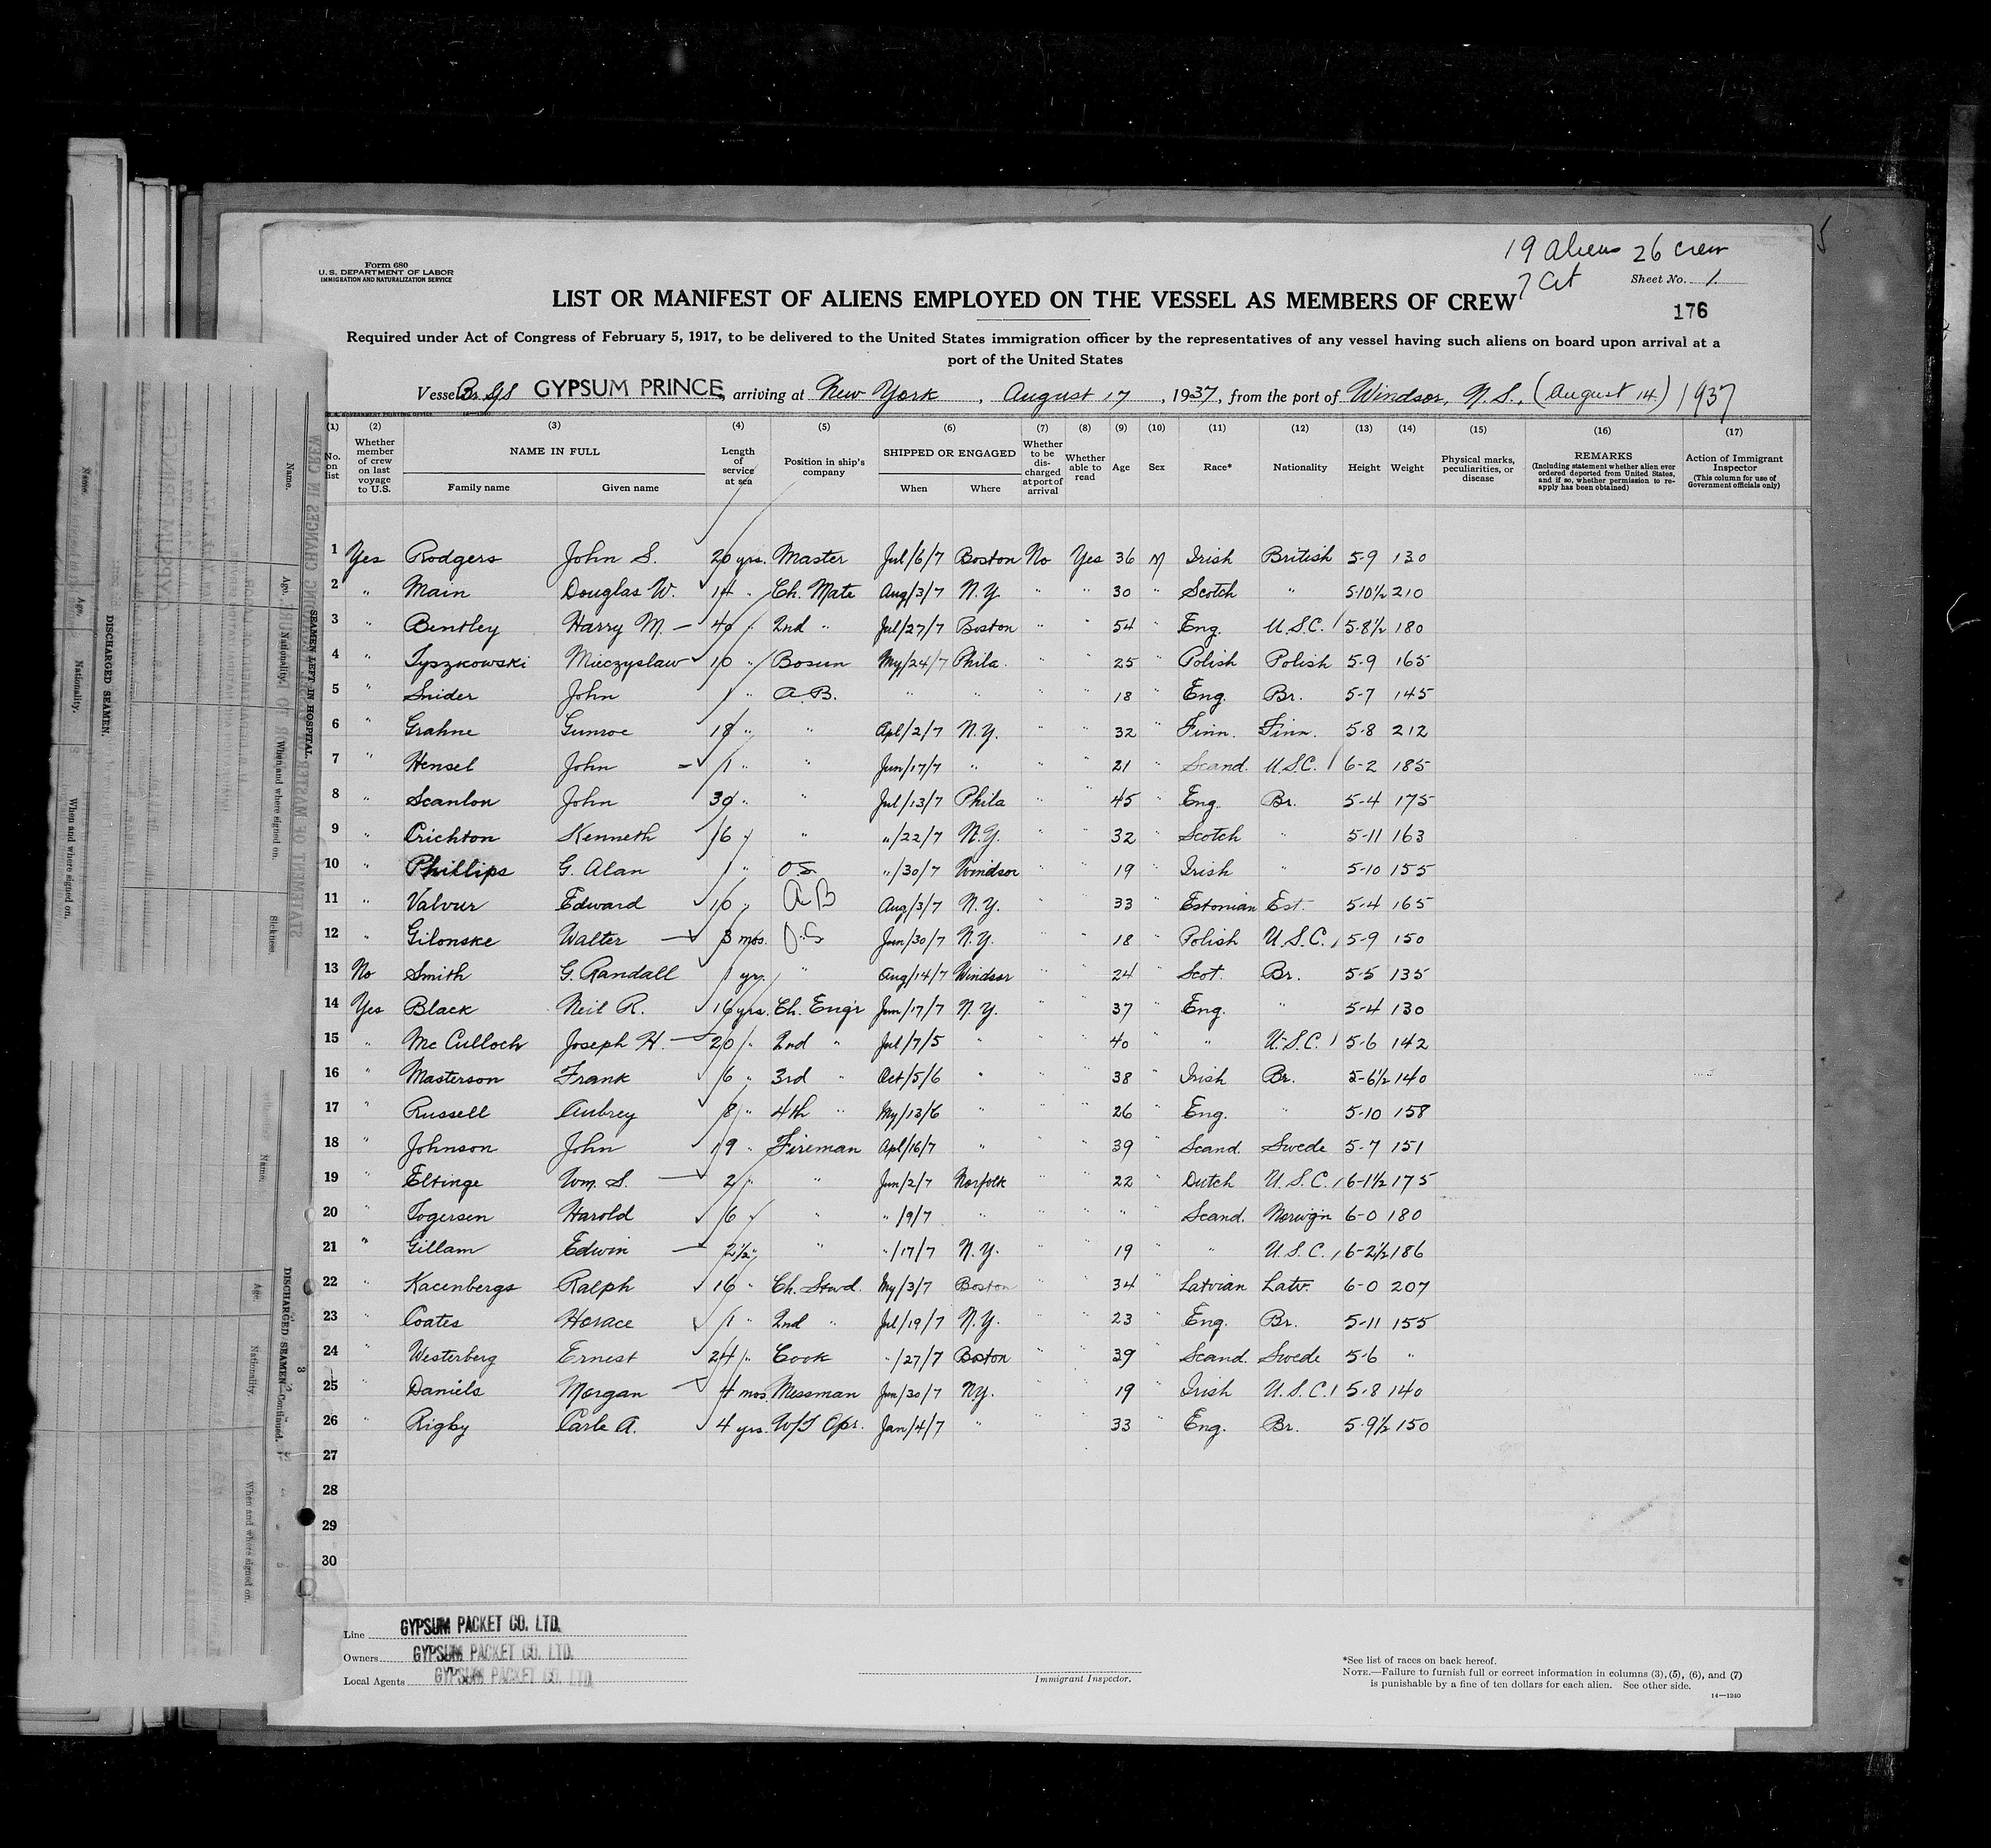 19 aliens 26 crew
7 Cit
Form 680
U. S. DEPARTMENT OF LABOR
IMMIGRATION AND NATURALIZATION SERVICE
Sheet No. 1.
LIST OR MANIFEST OF ALIENS EMPLOYED ON THE VESSEL AS MEMBERS OF CREW
176
Required under Act of Congress of February 5, 1917, to be delivered to the United States immigration officer by the representatives of any vessel having such aliens on board upon arrival at a
port of the United States
Vessel Br. GYPSUM PRINCE, arriving at New York, August 17, 1937, from the port of Windsor, N.S., (August 14) 1937
(1) (2) (3) (4) (5) (6) (7) (8) (9) (10) (11) (12) (13) (14) (15) (16) (17)
No. on list
Whether member of crew on last voyage to U.S.
NAME IN FULL
Family name
Given name
Length of service at sea
Position in ship's company
SHIPPED OR ENGAGED
When
Where
Whether to be discharged at port of arrival
Whether able to read
Age
Sex
Race*
Nationality
Height
Weight
Physical marks, peculiarities, or disease
REMARKS
(Including statement whether alien ever ordered deported from United States, and if so, whether permission to re-apply has been obtained)
Action of Immigrant Inspector
(This column for use of Government officials only)
1 Yes Rodgers John S. 20 yrs. Master Jul/6/7 Boston No Yes 36 M Irish British 5-9 130
2 " Main Douglas W. 14 " Ch. Mate Aug/3/7 N.Y. " " 30 " Scotch " 5-10½ 210
3 " Bentley Harry M. 40 " 2nd " Jul/27/7 Boston " " 54 " Eng. U.S.C. 5-8½ 180
4 " Tyszkowski Mieczyslaw 10 " Bosun My/24/7 Phila. " " 25 " Polish Polish 5-9 165
5 " Snider John 1 " A.B. " " " " 18 " Eng. Br. 5-7 145
6 " Grahne Gunroe 18 " " Apl/2/7 N.Y. " " 32 " Finn. Finn. 5-8 212
7 " Hensel John 1 " " Jun/17/7 " " " 21 " Scand. U.S.C. 6-2 185
8 " Scanlon John 30 " " Jul/13/7 Phila " " 45 " Eng. Br. 5-4 175
9 " Crichton Kenneth 16 " " "/22/7 N.Y. " " 32 " Scotch " 5-11 163
10 " Phillips G. Alan 1 " O.S. "/30/7 Windsor " " 19 " Irish " 5-10 155
11 " Valvur Edward 10 " AB Aug/3/7 N.Y. " " 33 " Estonian Est. 5-4 165
12 " Gilonske Walter 3 mos. O.S Jun/30/7 N.Y. " " 18 " Polish U.S.C. 5-9 150
13 No Smith G. Randall 1 yr. " Aug/14/7 Windsor " " 24 " Scot. Br. 5-5 135
14 Yes Black Neil R. 16 yrs. Ch. Eng'r Jun/17/7 N.Y. " " 37 " Eng. " 5-4 130
15 " McCulloch Joseph H. 20 " 2nd " Jul/7/5 " " " 40 " " U.S.C. 5-6 142
16 " Masterson Frank 6 " 3rd " Oct/5/6 " " " 38 " Irish Br. 5-6½ 140
17 " Russell Aubrey 8 " 4th " My/13/6 " " " 26 " Eng. " 5-10 158
18 " Johnson John 19 " Fireman Apl/16/7 " " " 39 " Scand. Swede 5-7 151
19 " Eltinge Wm. S. 2 " " Jun/2/7 Norfolk " " 22 " Dutch U.S.C. 6-1½ 175
20 " Togersen Harold 6 " " "/9/7 " " " " " Scand. Norwg'n 6-0 180
21 " Gillam Edwin 2½ " " "/17/7 N.Y. " " 19 " " U.S.C. 6-2½ 186
22 " Kacenbergs Ralph 16 " Ch. Stwd. My/3/7 Boston " " 34 " Latvian Latv. 6-0 207
23 " Coates Horace 1 " 2nd " Jul/19/7 N.Y. " " 23 " Eng. Br. 5-11 155
24 " Westerberg Ernest 24 " Cook "/27/7 Boston " " 39 " Scand. Swede 5-6 "
25 " Daniels Morgan 4 mos. Messman Jun/30/7 N.Y. " " 19 " Irish U.S.C. 5-8 140
26 " Rigby Carle A. 4 yrs. W/T Opr. Jan/4/7 " " " 33 " Eng. Br. 5-9½ 150
27
28
29
30
Line GYPSUM PACKET CO. LTD.
Owners GYPSUM PACKET CO. LTD.
Local Agents GYPSUM PACKET CO. LTD
Immigrant Inspector.
*See list of races on back hereof.
NOTE.—Failure to furnish full or correct information in columns (3), (5), (6), and (7)
is punishable by a fine of ten dollars for each alien. See other side.
14—1240
SEAMEN LEFT IN HOSPITAL.
Name.
Age.
Nationality.
When and where signed on.
Sickness.
DISCHARGED SEAMEN.
Name.
Age.
Nationality.
When and where signed on.
DISCHARGED SEAMEN—Continued.
Name.
Age.
Nationality.
When and where signed on.